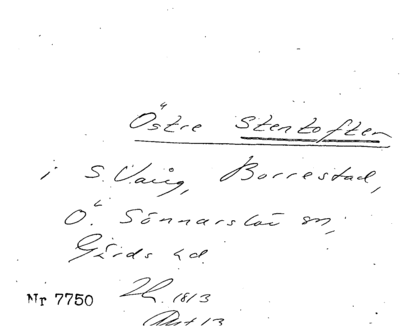 Östre Stentoften
i S. Vång, Borrestad,
Ö. Sönnarslöv sn,
Gärds hd.
Nr 7750 1813